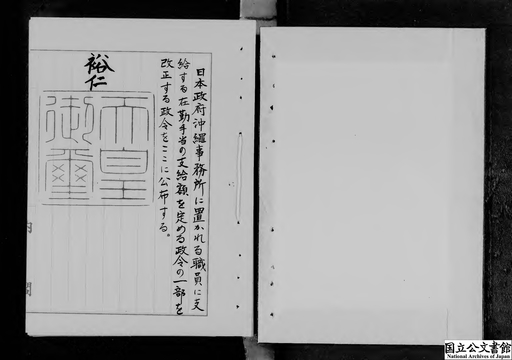 日本政府沖縄事務所に置かれる職員に支
給する在勤手当の支給額を定める政令の一部を
改正する政令をここに公布する。
裕仁
天皇
御璽
内
閣
国立公文書館
National Archives of Japan